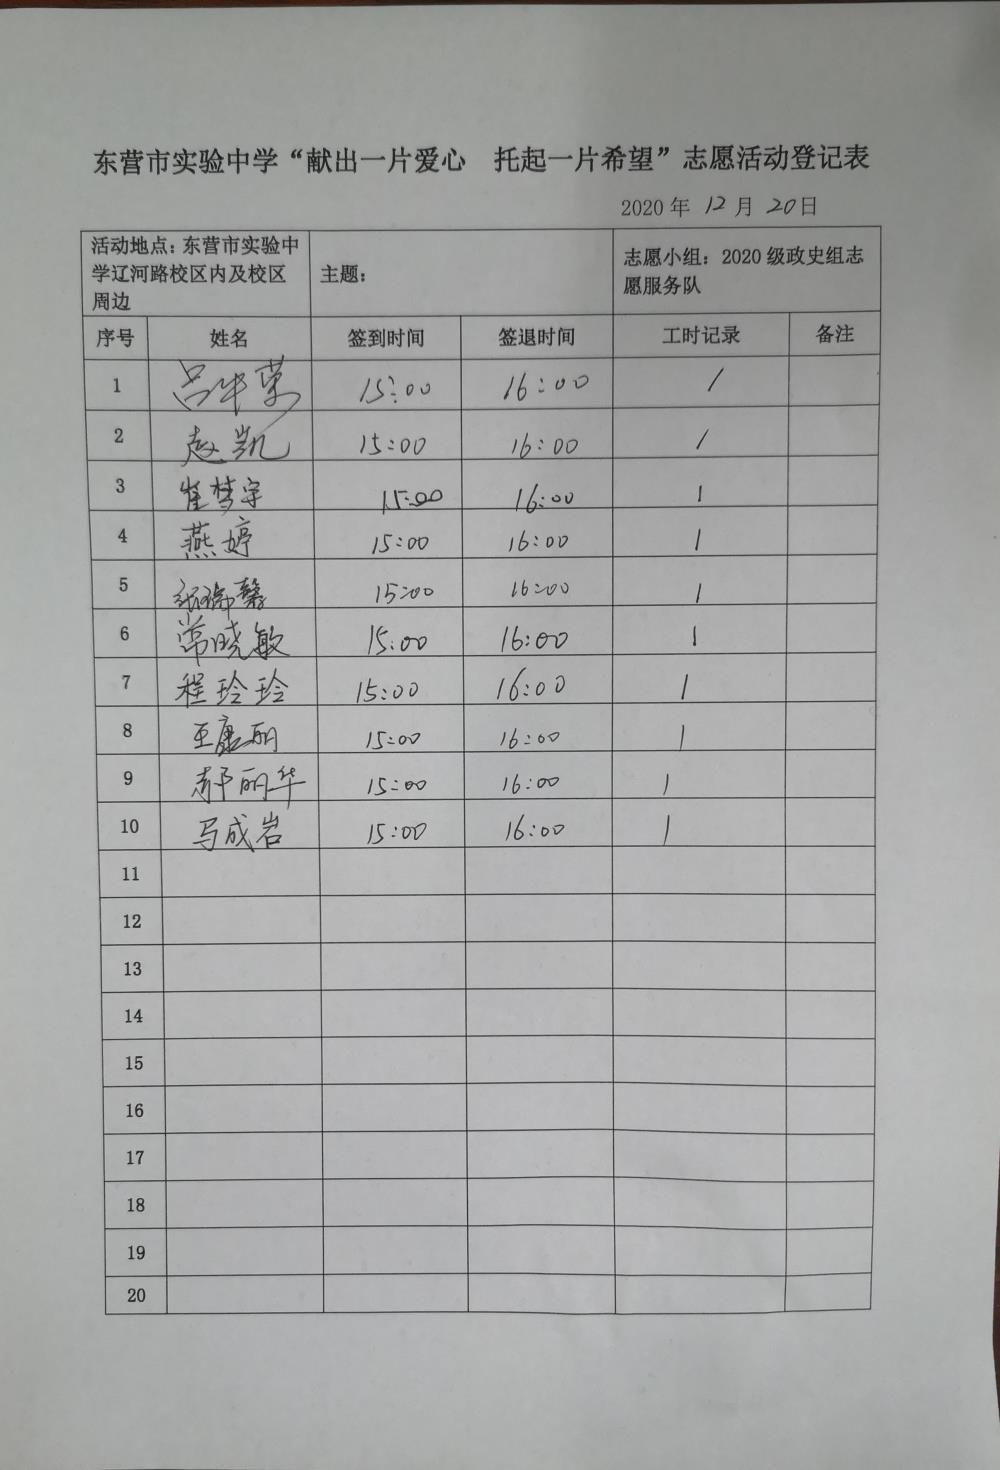 东营市实验中学“献出一片爱心 托起一片希望”志愿活动登记表
2020 年 12 月 20 日
活动地点：东营市实验中
学辽河路校区内及校区
周边
主题：
志愿小组：2020 级政史组志
愿服务队
序号 姓名 签到时间 签退时间 工时记录 备注
1 15:00 16:00 1
2 赵凯 15:00 16:00 1
3 崔梦宇 15:00 16:00 1
4 燕婷 15:00 16:00 1
5 张瑞馨 15:00 16:00 1
6 常晓敏 15:00 16:00 1
7 程玲玲 15:00 16:00 1
8 王康丽 15:00 16:00 1
9 郝丽华 15:00 16:00 1
10 马成岩 15:00 16:00 1
11
12
13
14
15
16
17
18
19
20